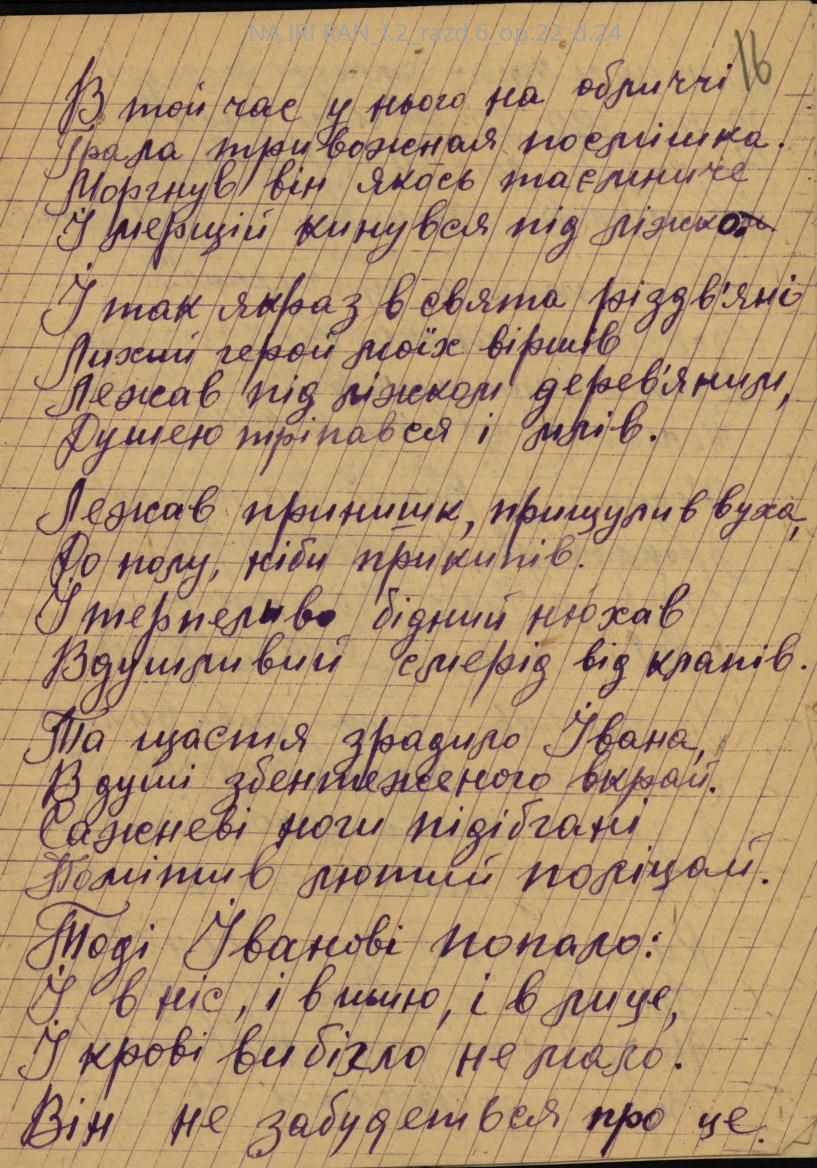 NA IRI RAN_f.2_razd.6_op.22_d.24
16
В той час у нього на обличчі
Грала тривожная посмішка.
Моргнув він якось таємниче
І мерщій кинувся під ліжко.
І так якраз в свята різдв'яні
Лихий герой моїх віршів
Лежав під ліжком дерев'яним,
Душею тріпався і млів.
Лежав принишк, прищулив вуха,
До полу, ніби прикипів.
І терпеливо бідний нюхав
Вдушливий смерід від клапів.
Та щастя зрадило Івана,
В душі збентеженого вкрай.
Сажневі ноги підібгані
Помітив лютий поліцай.
Тоді Іванові попало:
І в ніс, і в шию, і в лице,
І крові вибігло не мало.
Він не забудеться про це.